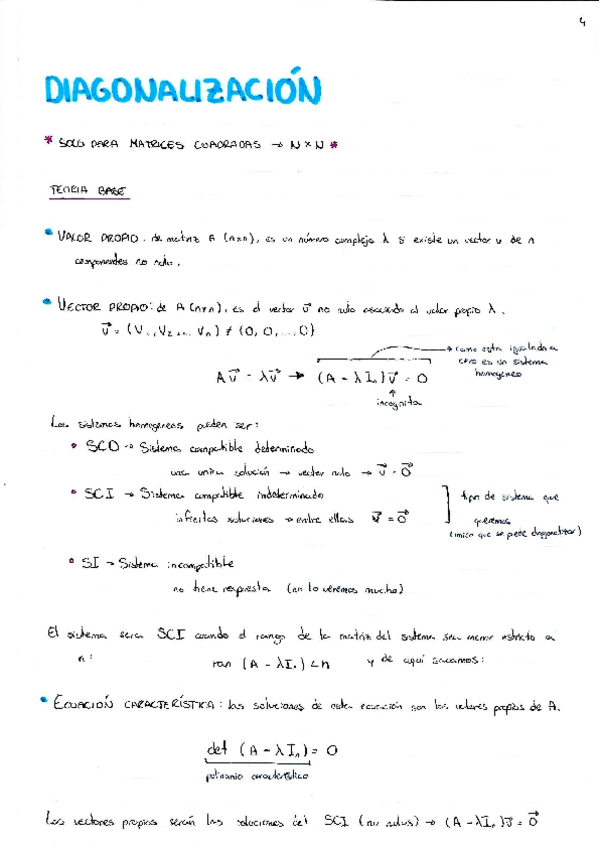 4
DIAGONALIZACIÓN
* SOLO PARA MATRICES CUADRADAS → N × N *
TEORIA BASE
• VALOR PROPIO: de matriz A (n×n), es un número complejo λ si existe un vector v de n
componentes no nulo.
• VECTOR PROPIO: de A (n×n), es el vector v⃗ no nulo asociado al valor propio λ.
v⃗ = (V₁, V₂, ... Vₙ) ≠ (0, 0, ... 0)
→ como esta igualada a
cero es un sistema
homogeneo
Av⃗ = λv⃗ → (A - λIₙ)v⃗ = 0
↑
incognita
Los sistemas homogeneos pueden ser:
• SCD → Sistema compatible determinado
una unica solución → vector nulo → v⃗ = 0⃗
• SCI → Sistema compatible indeterminado
infinitas soluciones → entre ellas v⃗ = 0⃗
] tipo de sistema que
queremos
(unico que se puede diagonalizar)
• SI → Sistema incompatible
no tiene respuesta (no lo veremos mucho)
El sistema sera SCI cuando el rango de la matriz del sistema sea menor estricto a
n: ran (A - λIₙ) < n y de aquí sacamos:
• ECUACIÓN CARACTERÍSTICA: las soluciones de esta ecuación son los valores propios de A.
det (A - λIₙ) = 0
polinomio caracteristico
Los vectores propios serán las soluciones del SCI (no nulas) → (A - λIₙ)v⃗ = 0⃗